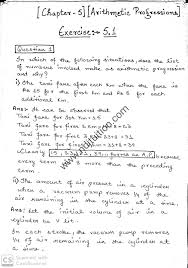 [Chapter-5] [Arithmetic Progressions]
Exercise:- 5.1
Question 1
In which of the following situations, does the list
of numbers involved make an arithmetic progression
and why?
i) The taxi fare after each km when the fare is
Rs 15 for the first km and Rs 8 for each
additional km.
Ans:- It can be observed that
Taxi fare for 1st km = 15
Taxi fare for first 2 km = 15+8 = 23
Taxi fare for first 3 km = 23+8 = 31
Clearly 15, 23, 31, 39... forms an A.P because
every term is 8 more than the preceding
term.
ii) The amount of air present in a cylinder
when a vacuum pump removes 1/4 of the air
remaining in the cylinder at a time.
Ans:- Let the initial volume of air in a
cylinder be V lit
In each stroke, the vacuum pump removes
1/4 of air remaining in the cylinder at a
CS Scanned with
CamScanner